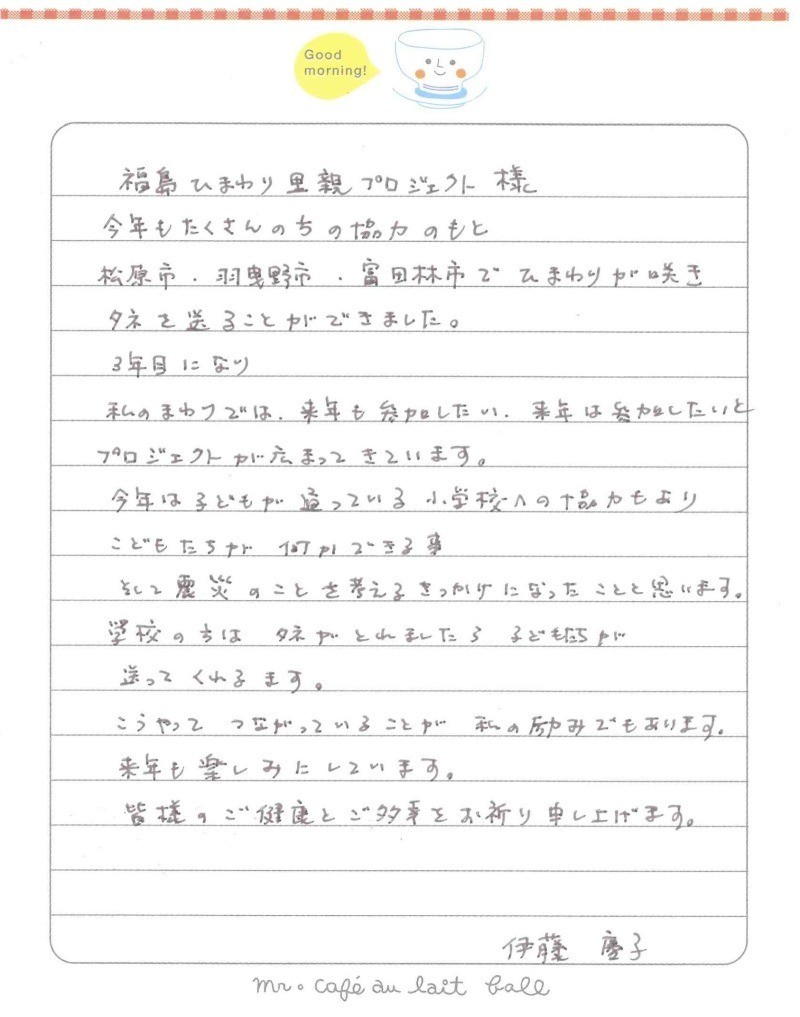 Good
morning!
福島ひまわり里親プロジェクト 様
今年もたくさんのちの協力のもと
松原市・羽曳野市・富田林市でひまわりが咲き
タネを送ることができました。
3年目になり
私のまわりでは、来年も参加したい、来年は参加したいと
プロジェクトが広まってきています。
今年は子どもが通っている小学校への協力もあり
こどもたちが 何かできる事
そして震災のことを考えるきっかけになったことと思います。
学校の方は タネがとれましたら 子ども達が
送ってくれるます。
こうやって つながっていることが 私の励みでもあります。
来年も楽しみにしています。
皆様のご健康とご多幸をお祈り申し上げます。
伊藤 慶子
mr. café au lait ball